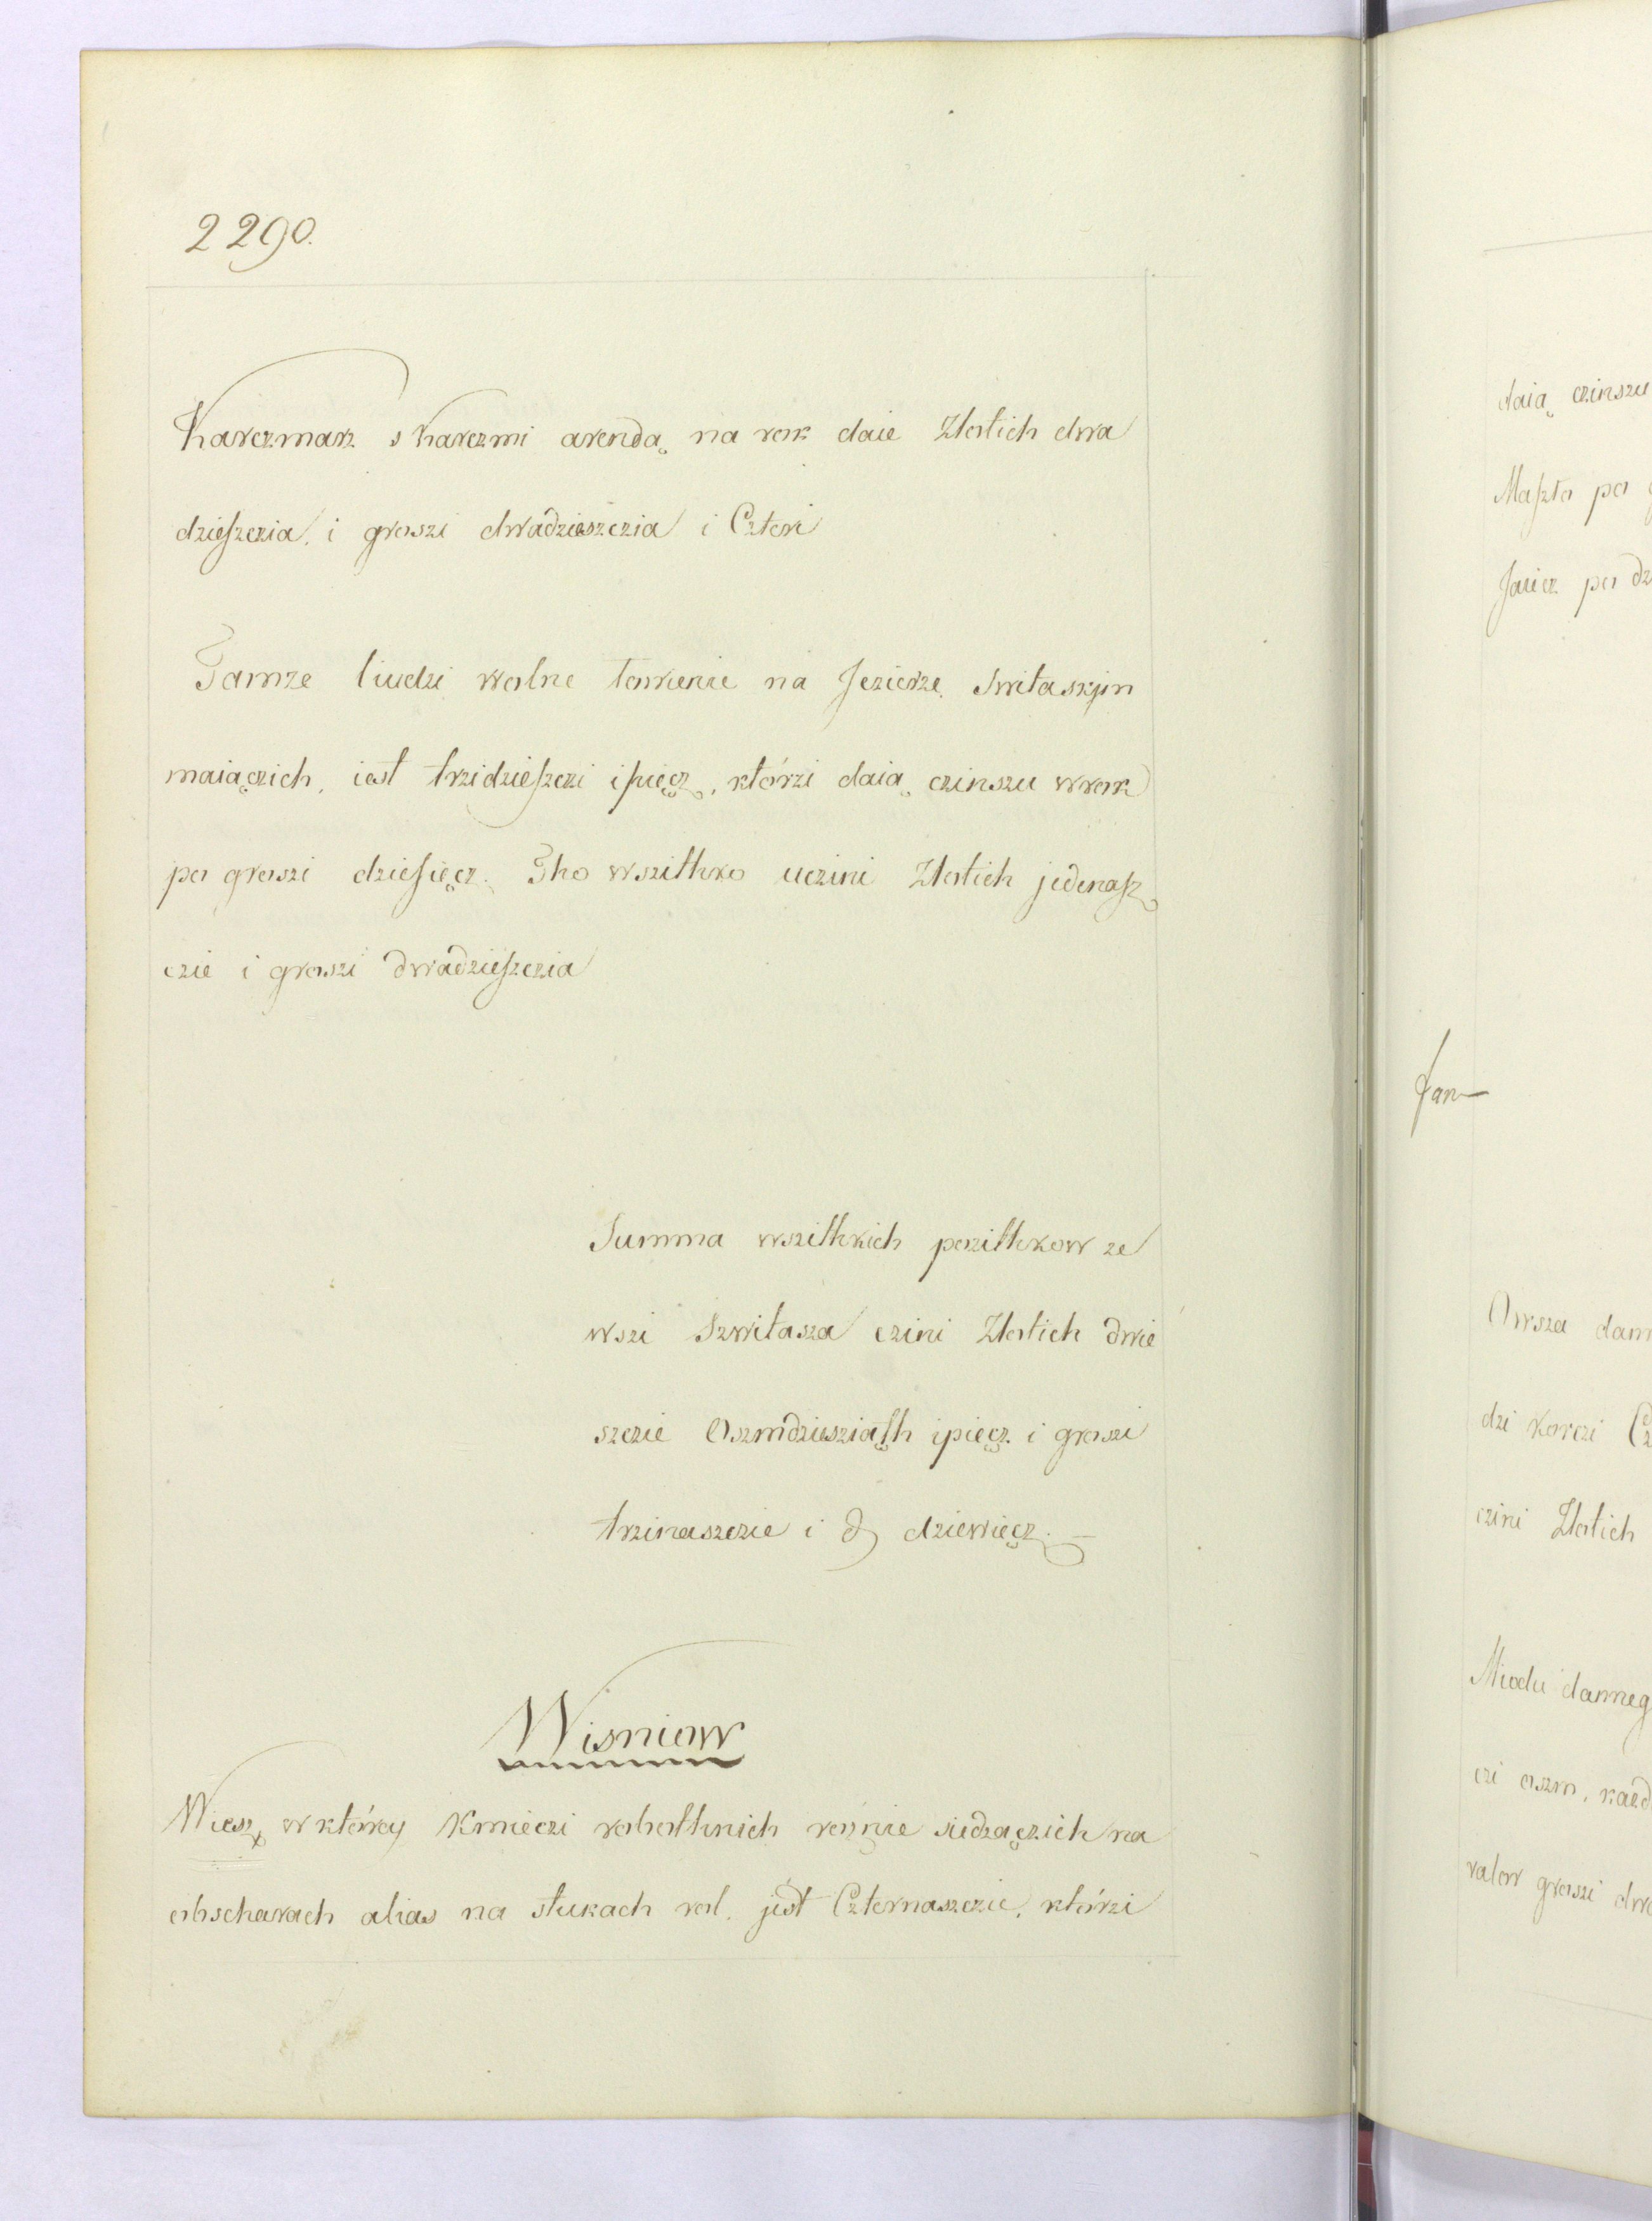 2290.
Karczmarz s karczmi arendą na rok daie Złotich dwa
dzieszczia i groszi dwadzieszczia i Czteri
Tamze liudzi wolne lowienie na Jezierze Switaskjm
maiączich, iest trzidzieszczi ipięcz, którzi daią czinszu wrok
po groszi dziesięcz. Tho wszithko uczini Złotich jedenasz
czie i groszi dwadzieszczia
Summa wszithkich pozithkow ze
wszi Szwitasza czini Złotich dwie
szczie Oszmdziesziąth ipięcz i groszi
trzinaszczie i d dziewięcz. –
Wisniow
Wiesz w którey Kmieczi robothnich rożnie siedzączich na
obscharach alias na stukach rol. jest Czternaszczie, którzi
daią czinszu
Maszła po
Jaiecz po dz
Jan
Owsza dann
dzi Korczi Cz
czini Złotich
Miodu danneg
czi oszm, kazd
valor groszi dwa